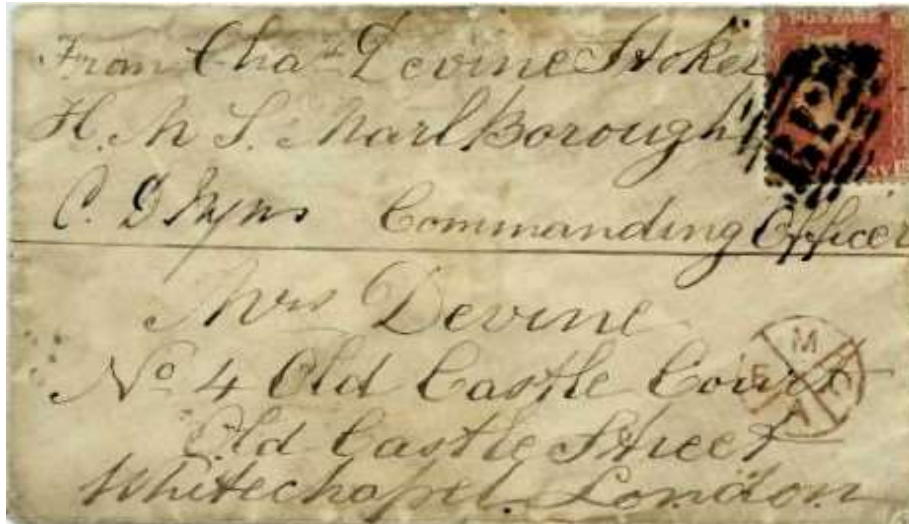 POSTAGE
From Chas Devine Stoker
H. M S. Marlborough
C. D Commanding Officer
Mrs Devine
No 4 Old Castle Court
Old Castle Street
Whitechapel London
M